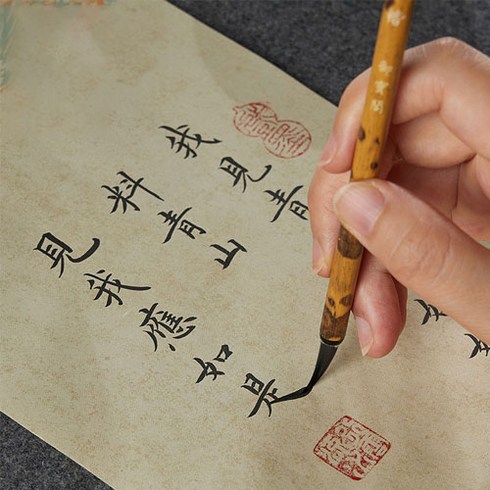 我見青
料青山
見我應如是